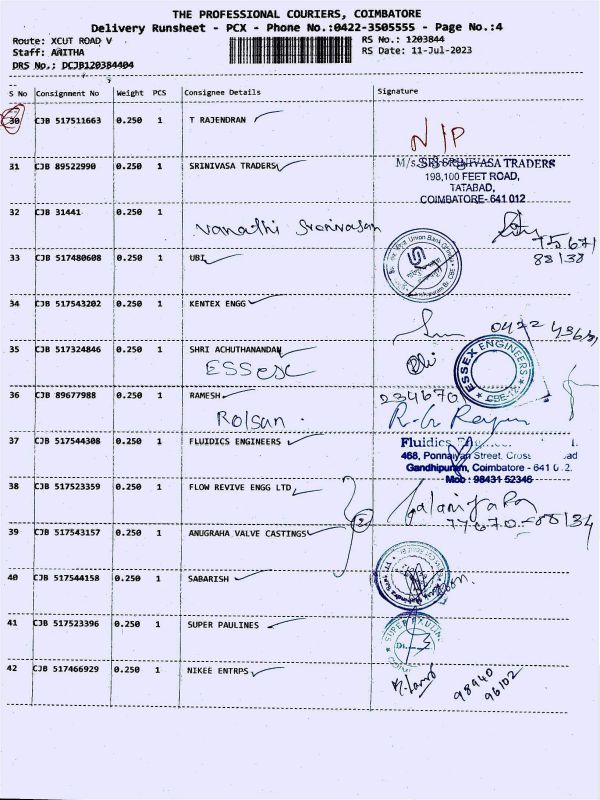 THE PROFESSIONAL COURIERS, COIMBATORE
Delivery Runsheet - PCX - Phone No.:0422-3505555 - Page No.:4
Route: XCUT ROAD V
RS No.: 1203844
Staff: ANITHA
RS Date: 11-Jul-2023
DRS No.: DCJB120384404
S No Consignment No Weight PCS Consignee Details Signature
30 CJB 517511663 0.250 1 T RAJENDRAN
N/P
31 CJB 89522990 0.250 1 SRINIVASA TRADERS
M/s. SRI SRINIVASA TRADERS
198,100 FEET ROAD,
TATABAD,
COIMBATORE-641 012
32 CJB 31441 0.250 1
Vanathi Srinivasan
75671
88138
33 CJB 517480608 0.250 1 UBI
34 CJB 517543202 0.250 1 KENTEX ENGG
0422 4363
35 CJB 517324846 0.250 1 SHRI ACHUTHANANDAN
Essex
ESSEX ENGINEERS
CBE-12
36 CJB 89677988 0.250 1 RAMESH
234670
Rolsan
37 CJB 517544308 0.250 1 FLUIDICS ENGINEERS
Fluidics
468, Ponnaiyan Street, Cross
Gandhipuram, Coimbatore - 641 012.
Mob : 98431 52346
38 CJB 517523359 0.250 1 FLOW REVIVE ENGG LTD
2
77670-88134
39 CJB 517543157 0.250 1 ANUGRAHA VALVE CASTINGS
40 CJB 517544158 0.250 1 SABARISH
41 CJB 517523396 0.250 1 SUPER PAULINES
42 CJB 517466929 0.250 1 NIKEE ENTRPS
98940
96102